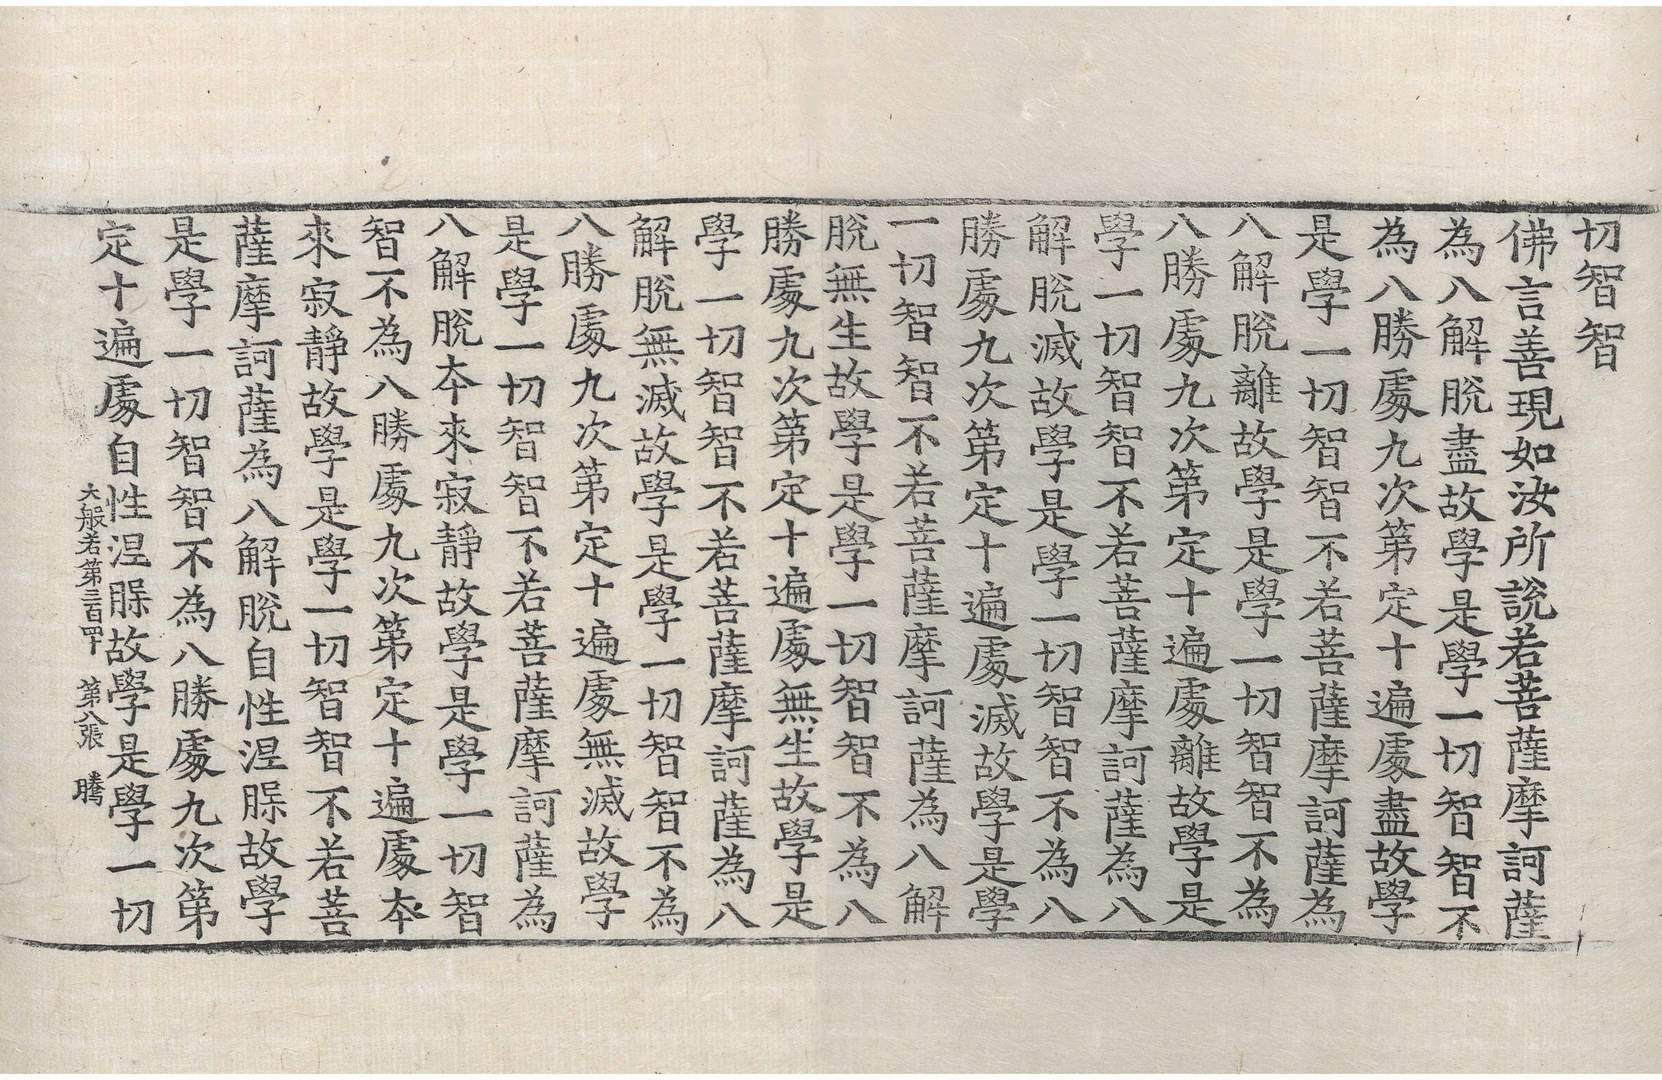 切智智
佛言善現如汝所說若菩薩摩訶薩
為八解脫盡故學是學一切智智不
為八勝處九次第定十遍處盡故學
是學一切智智不若菩薩摩訶薩為
八解脫離故學是學一切智智不為
八勝處九次第定十遍處離故學是
學一切智智不若菩薩摩訶薩為八
解脫滅故學是學一切智智不為八
勝處九次第定十遍處滅故學是學
一切智智不若菩薩摩訶薩為八解
脫無生故學是學一切智智不為八
勝處九次第定十遍處無生故學是
學一切智智不若菩薩摩訶薩為八
解脫無滅故學是學一切智智不為
八勝處九次第定十遍處無滅故學
是學一切智智不若菩薩摩訶薩為
八解脫夲來寂靜故學是學一切智
智不為八勝處九次第定十遍處夲
來寂靜故學是學一切智智不若菩
薩摩訶薩為八解脫自性涅槃故學
是學一切智智不為八勝處九次第
定十遍處自性涅槃故學是學一切
大般若第三百四十 第八張 騰